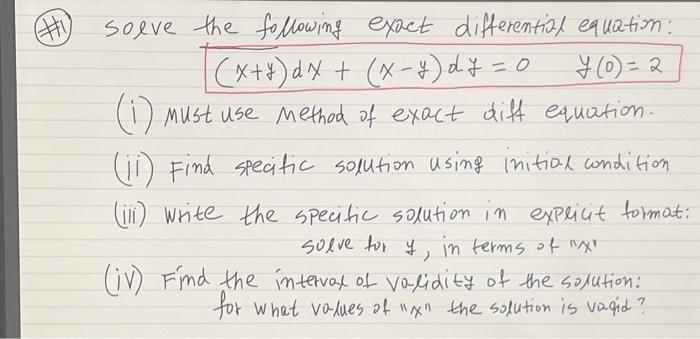 #1) solve the following exact differential equation:
(x+y)dx + (x-y)dy = 0 y(0) = 2
(i) Must use Method of exact diff equation.
(ii) Find specific solution using initial condition
(iii) Write the specific solution in explicit format:
solve for y, in terms of "x"
(iv) Find the interval of validity of the solution:
for what values of "x" the solution is vaqid?